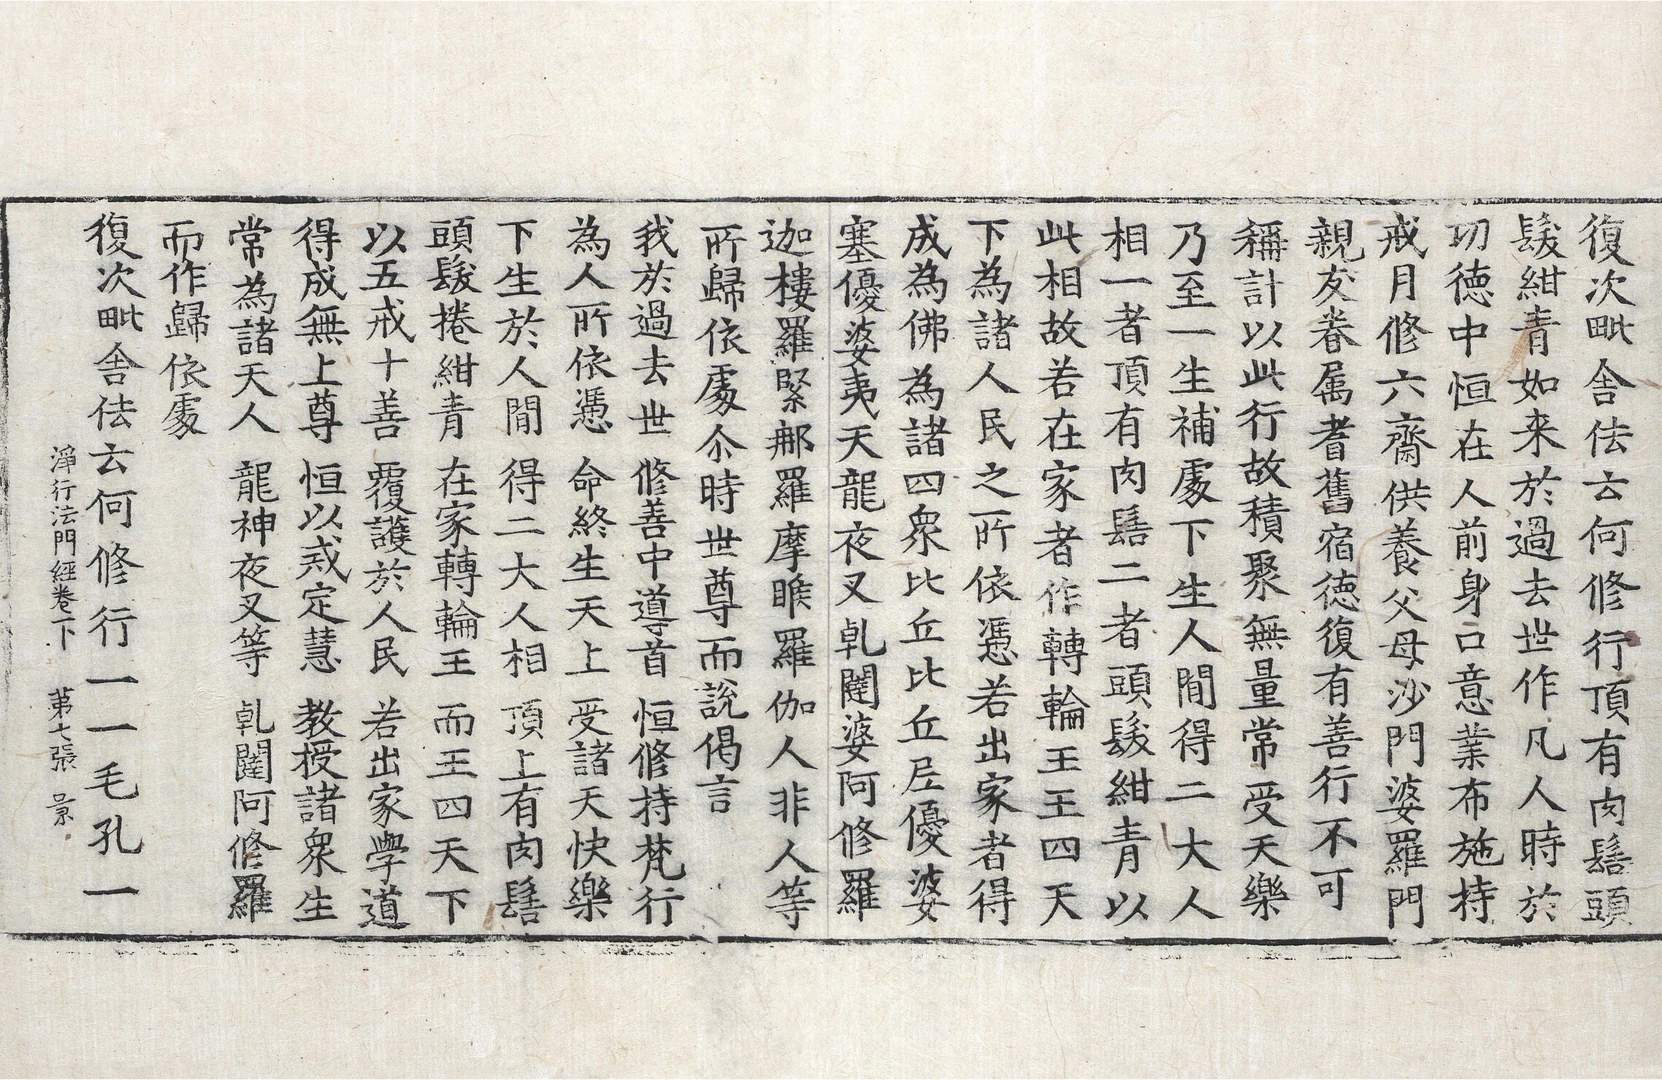 復次毗舍佉云何修行頂有肉髻頭
髮紺青如来於過去世作凡人時於
功德中恒在人前身口意業布施持
戒月修六齋供養父母沙門婆羅門
親友眷属耆舊宿德復有善行不可
稱計以此行故積聚無量常受天樂
乃至一生補處下生人閒得二大人
相一者頂有肉髻二者頭髮紺青以
此相故若在家者作轉輪王王四天
下為諸人民之所依憑若出家者得
成為佛為諸四衆比丘比丘尼優婆
塞優婆夷天龍夜叉乹闥婆阿修羅
迦樓羅緊那羅摩睺羅伽人非人等
所歸依處尒時世尊而說偈言
我於過去世 修善中導首 恒修持梵行
為人所依憑 命終生天上 受諸天快樂
下生於人閒 得二大人相 頂上有肉髻
頭髮捲紺青 在家轉輪王 而王四天下
以五戒十善 覆護於人民 若出家學道
得成無上尊 恒以戒定慧 教授諸衆生
常為諸天人 龍神夜叉等 乹闥阿修羅
而作歸依處
復次毗舍佉云何修行一一毛孔一
淨行法門經卷下 第七張 景